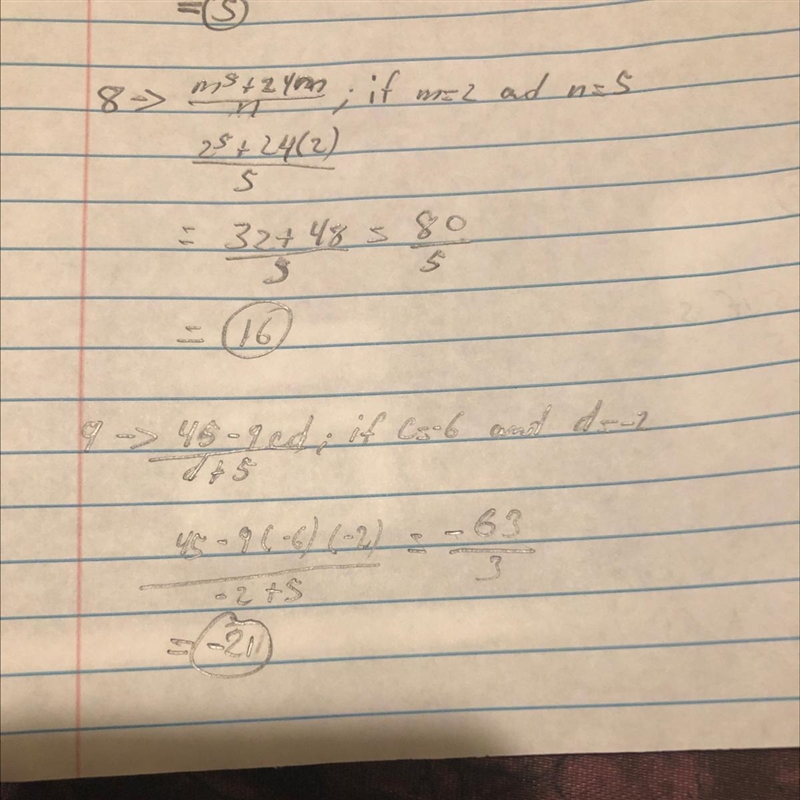 = 5
8 -> m⁵ + 24m / n ; if m=2 ad n=5
2⁵ + 24(2) / 5
= 32 + 48 / 5 = 80 / 5
= 16
9 -> 45 - 9cd / d+5 ; if c=-6 and d=-2
45 - 9(-6)(-2) / -2+5 = -63 / 3
= -21